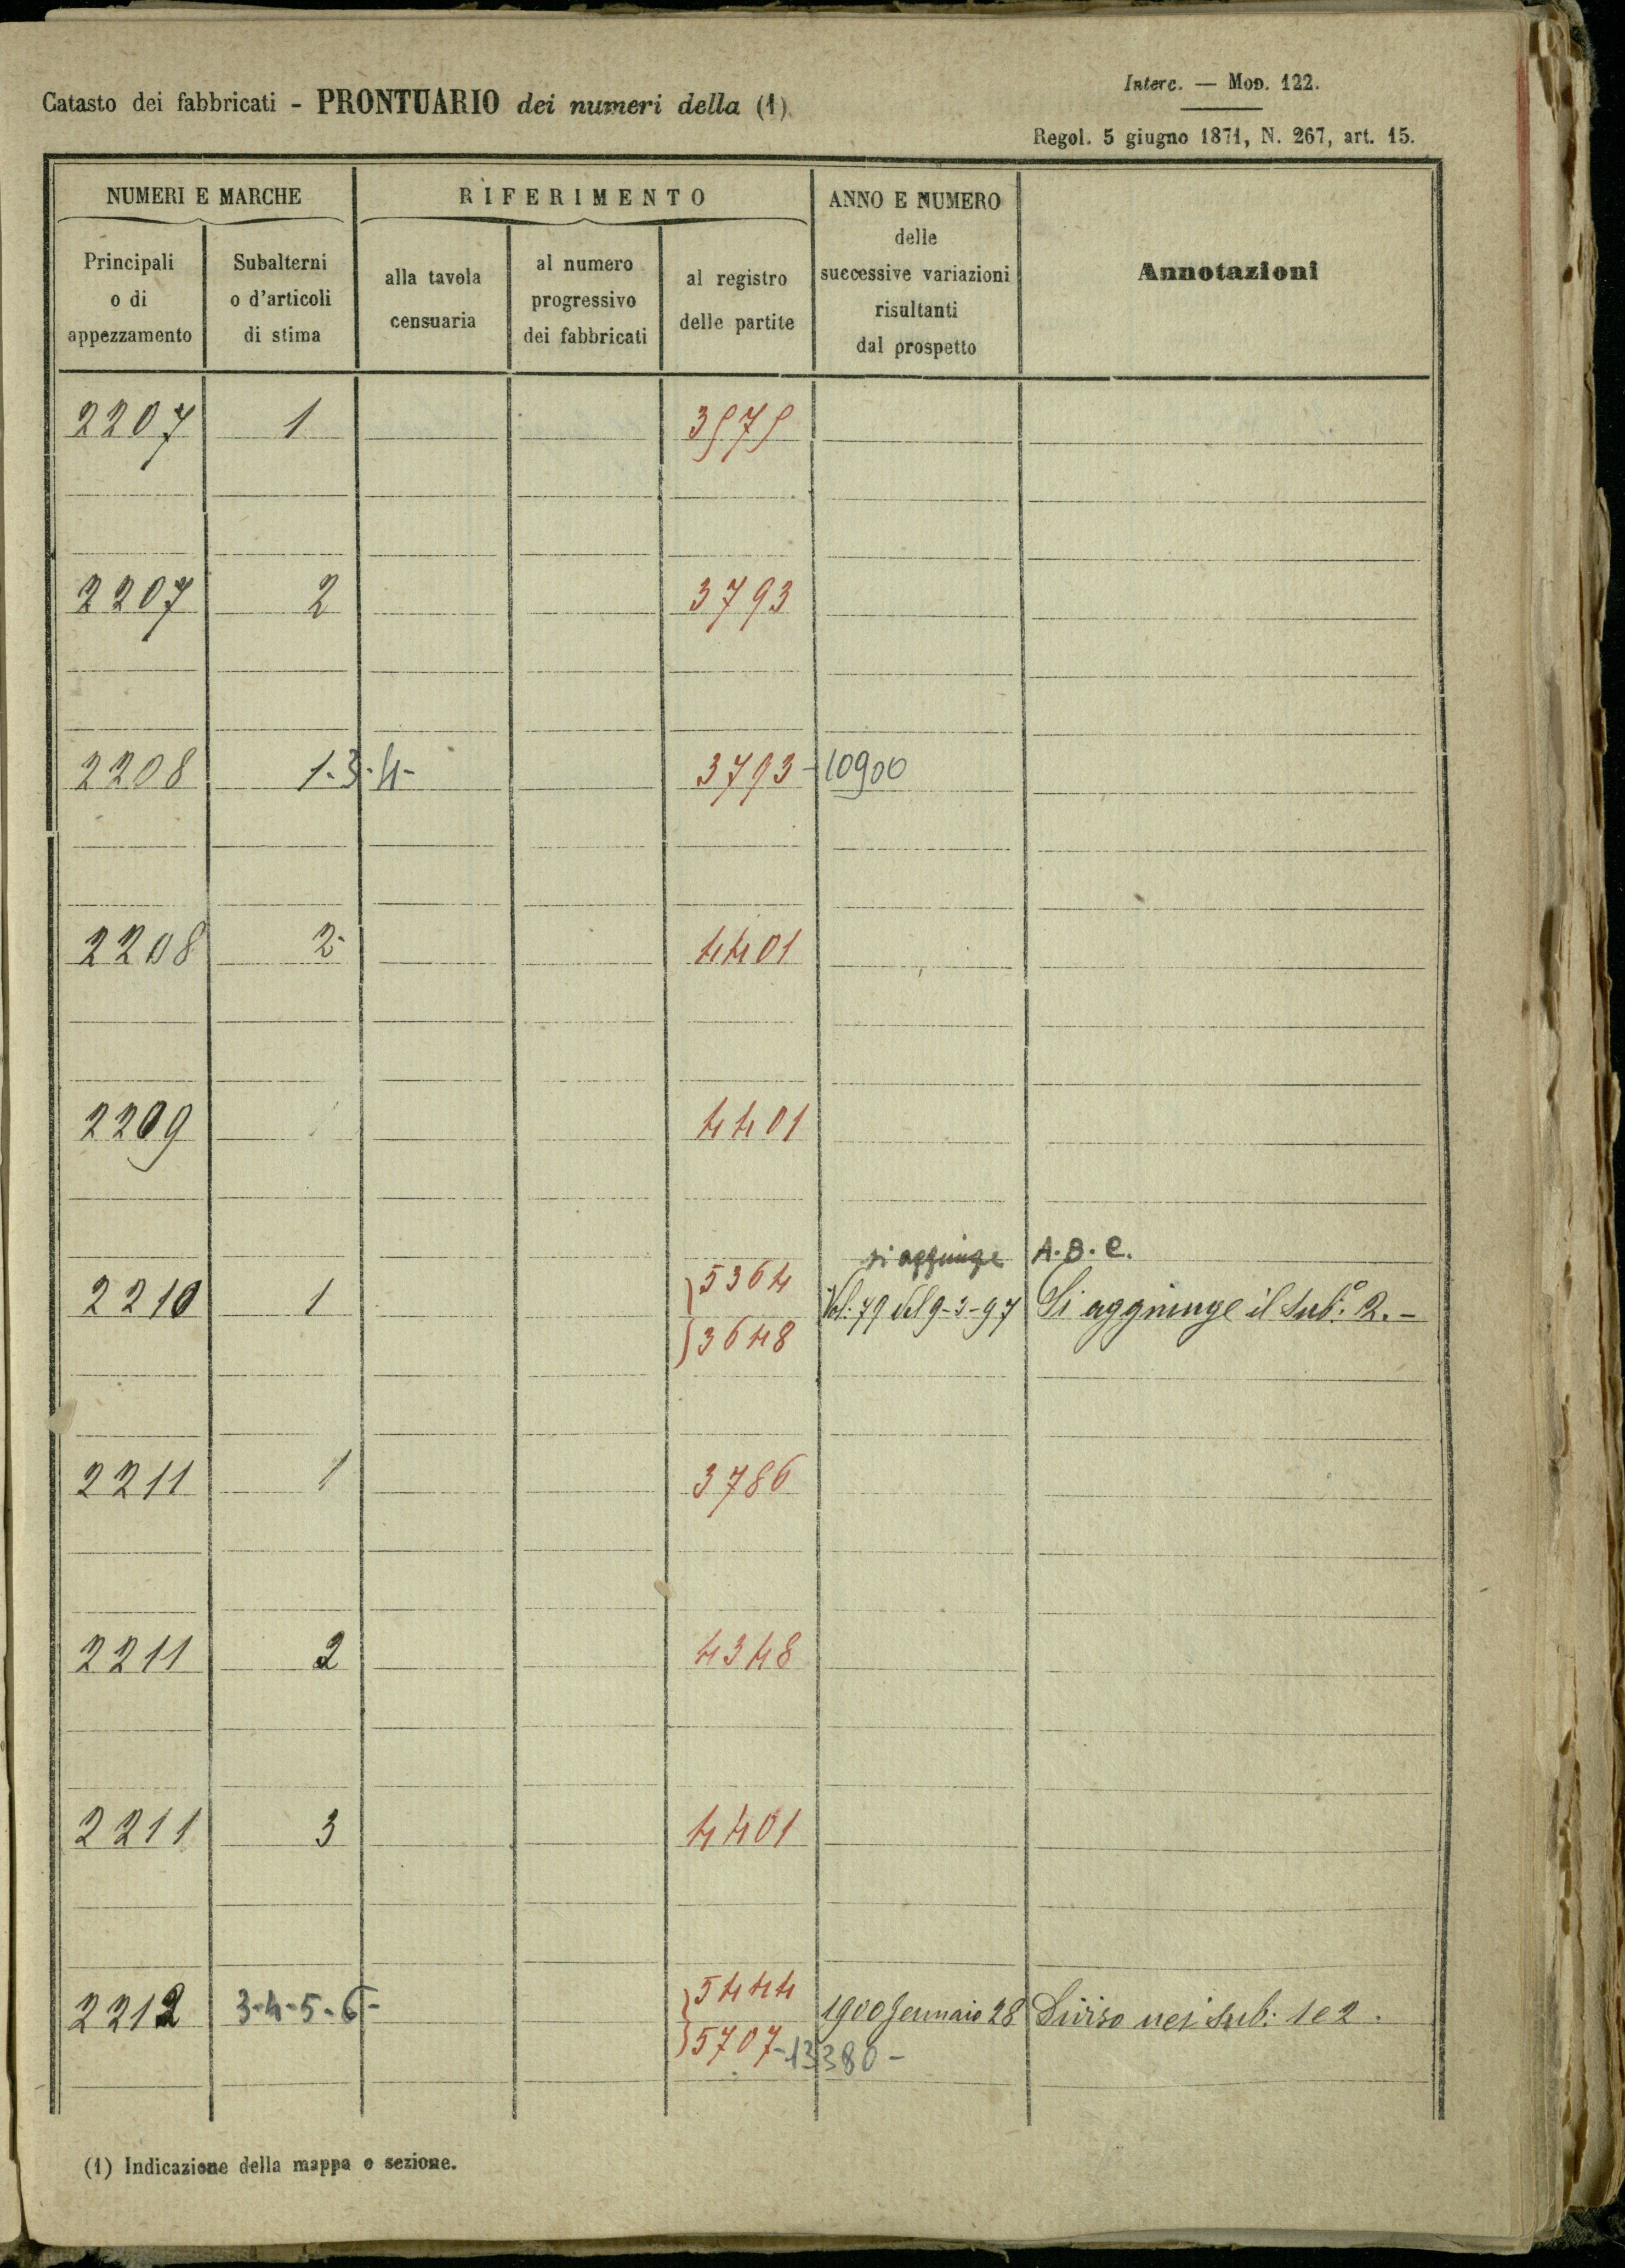 Interc. — Mod. 122.
Catasto dei fabbricati - PRONTUARIO dei numeri della (1)
Regol. 5 giugno 1871, N. 267, art. 15.
NUMERI E MARCHE RIFERIMENTO ANNO E NUMERO
delle
successive variazioni
risultanti
dal prospetto
Annotazioni
Principali
o di
appezzamento
Subalterni
o d'articoli
di stima
alla tavola
censuaria
al numero
progressivo
dei fabbricati
al registro
delle partite
2207 1 3575
2207 2 3793
2208 1-3-4- 3793-10900
2208 2- 4401
2209 4401
si aggiunge A.B.C.
5364
2210 1 Vol. 79 del 9-3-97 Si aggiunge il sub.° 2.-
3648
2211 1 3786
2211 2 4348
2211 3 4401
5444
2212 3-4-5-6- 1900 Gennaio 28 Diviso nei sub: 1 e 2.
5707-13380-
(1) Indicazione della mappa o sezione.